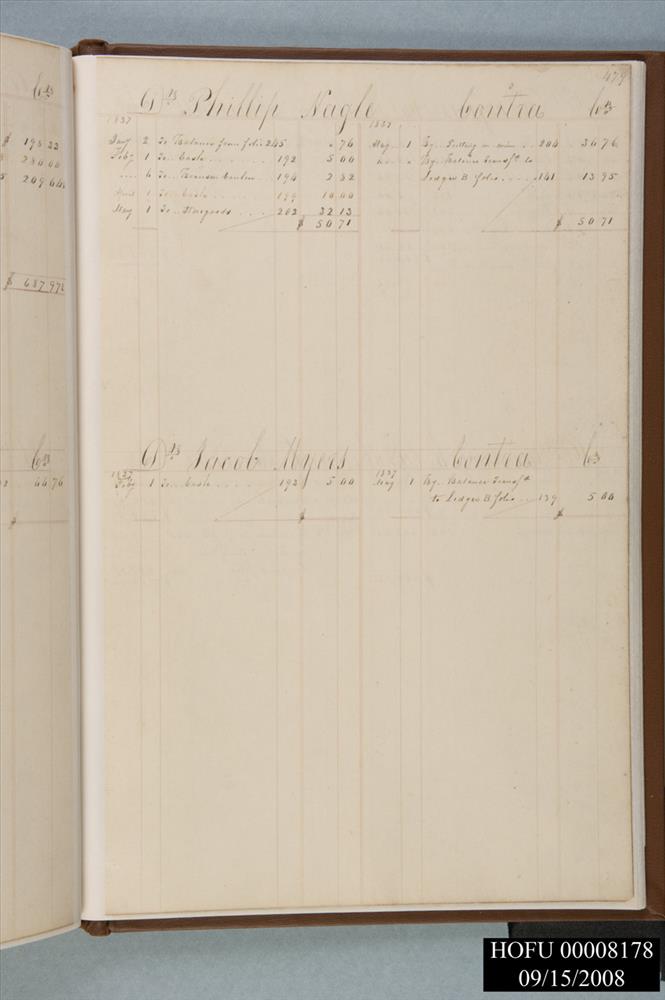 Crs
$ 198 22
280 00
209 64
$ 687 97
Crs
66 76
$
479
Drs Phillip Nagle Contra Crs
1837 1837
Jany 2 To Balance from folio 245 " 76 May 1 By 204 36 76
Feby 1 To Cash 192 5 00 " " By Balance Transfd to
" 6 To 194 2 82 Ledger B folio 141 13 95
April 1 To Cash 199 10 00
May 1 To Storegoods 202 32 13
$ 50 71 $ 50 71
Drs Jacob Myers Contra Crs
1837 1837
Feby 1 To Cash 192 5 00 May 1 By Balance Transfd
to Ledger B folio 139 5 00
$ $
HOFU 00008178
09/15/2008